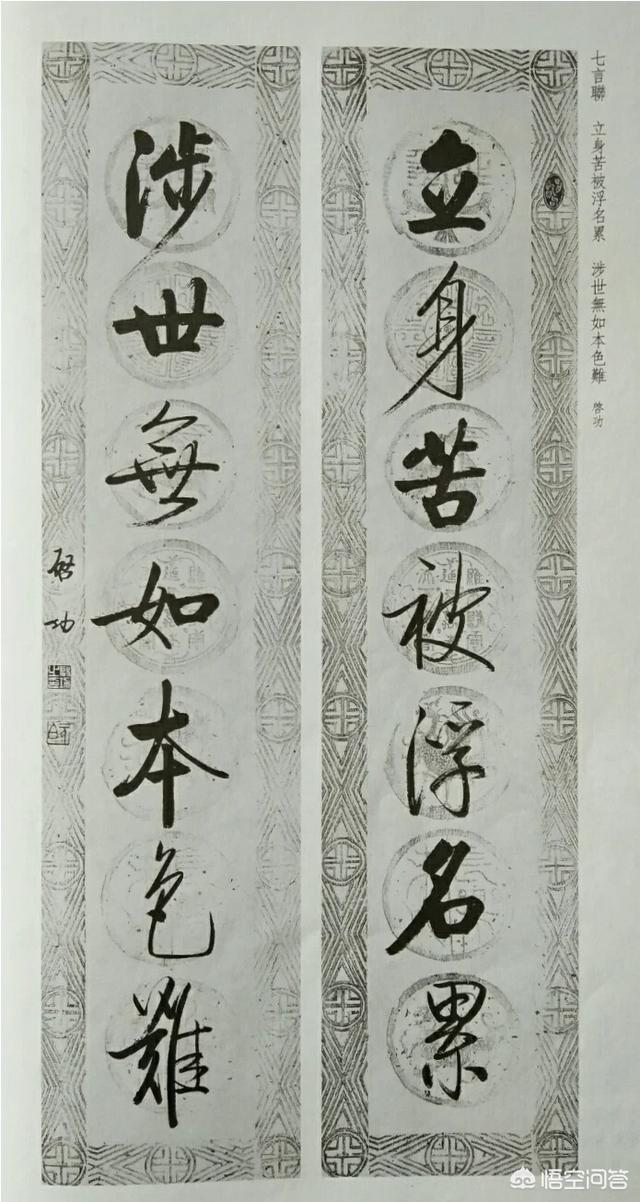 七言聯 立身苦被浮名累 涉世無如本色難 啓功
立身苦被浮名累
涉世無如本色難
啓功
悟空问答